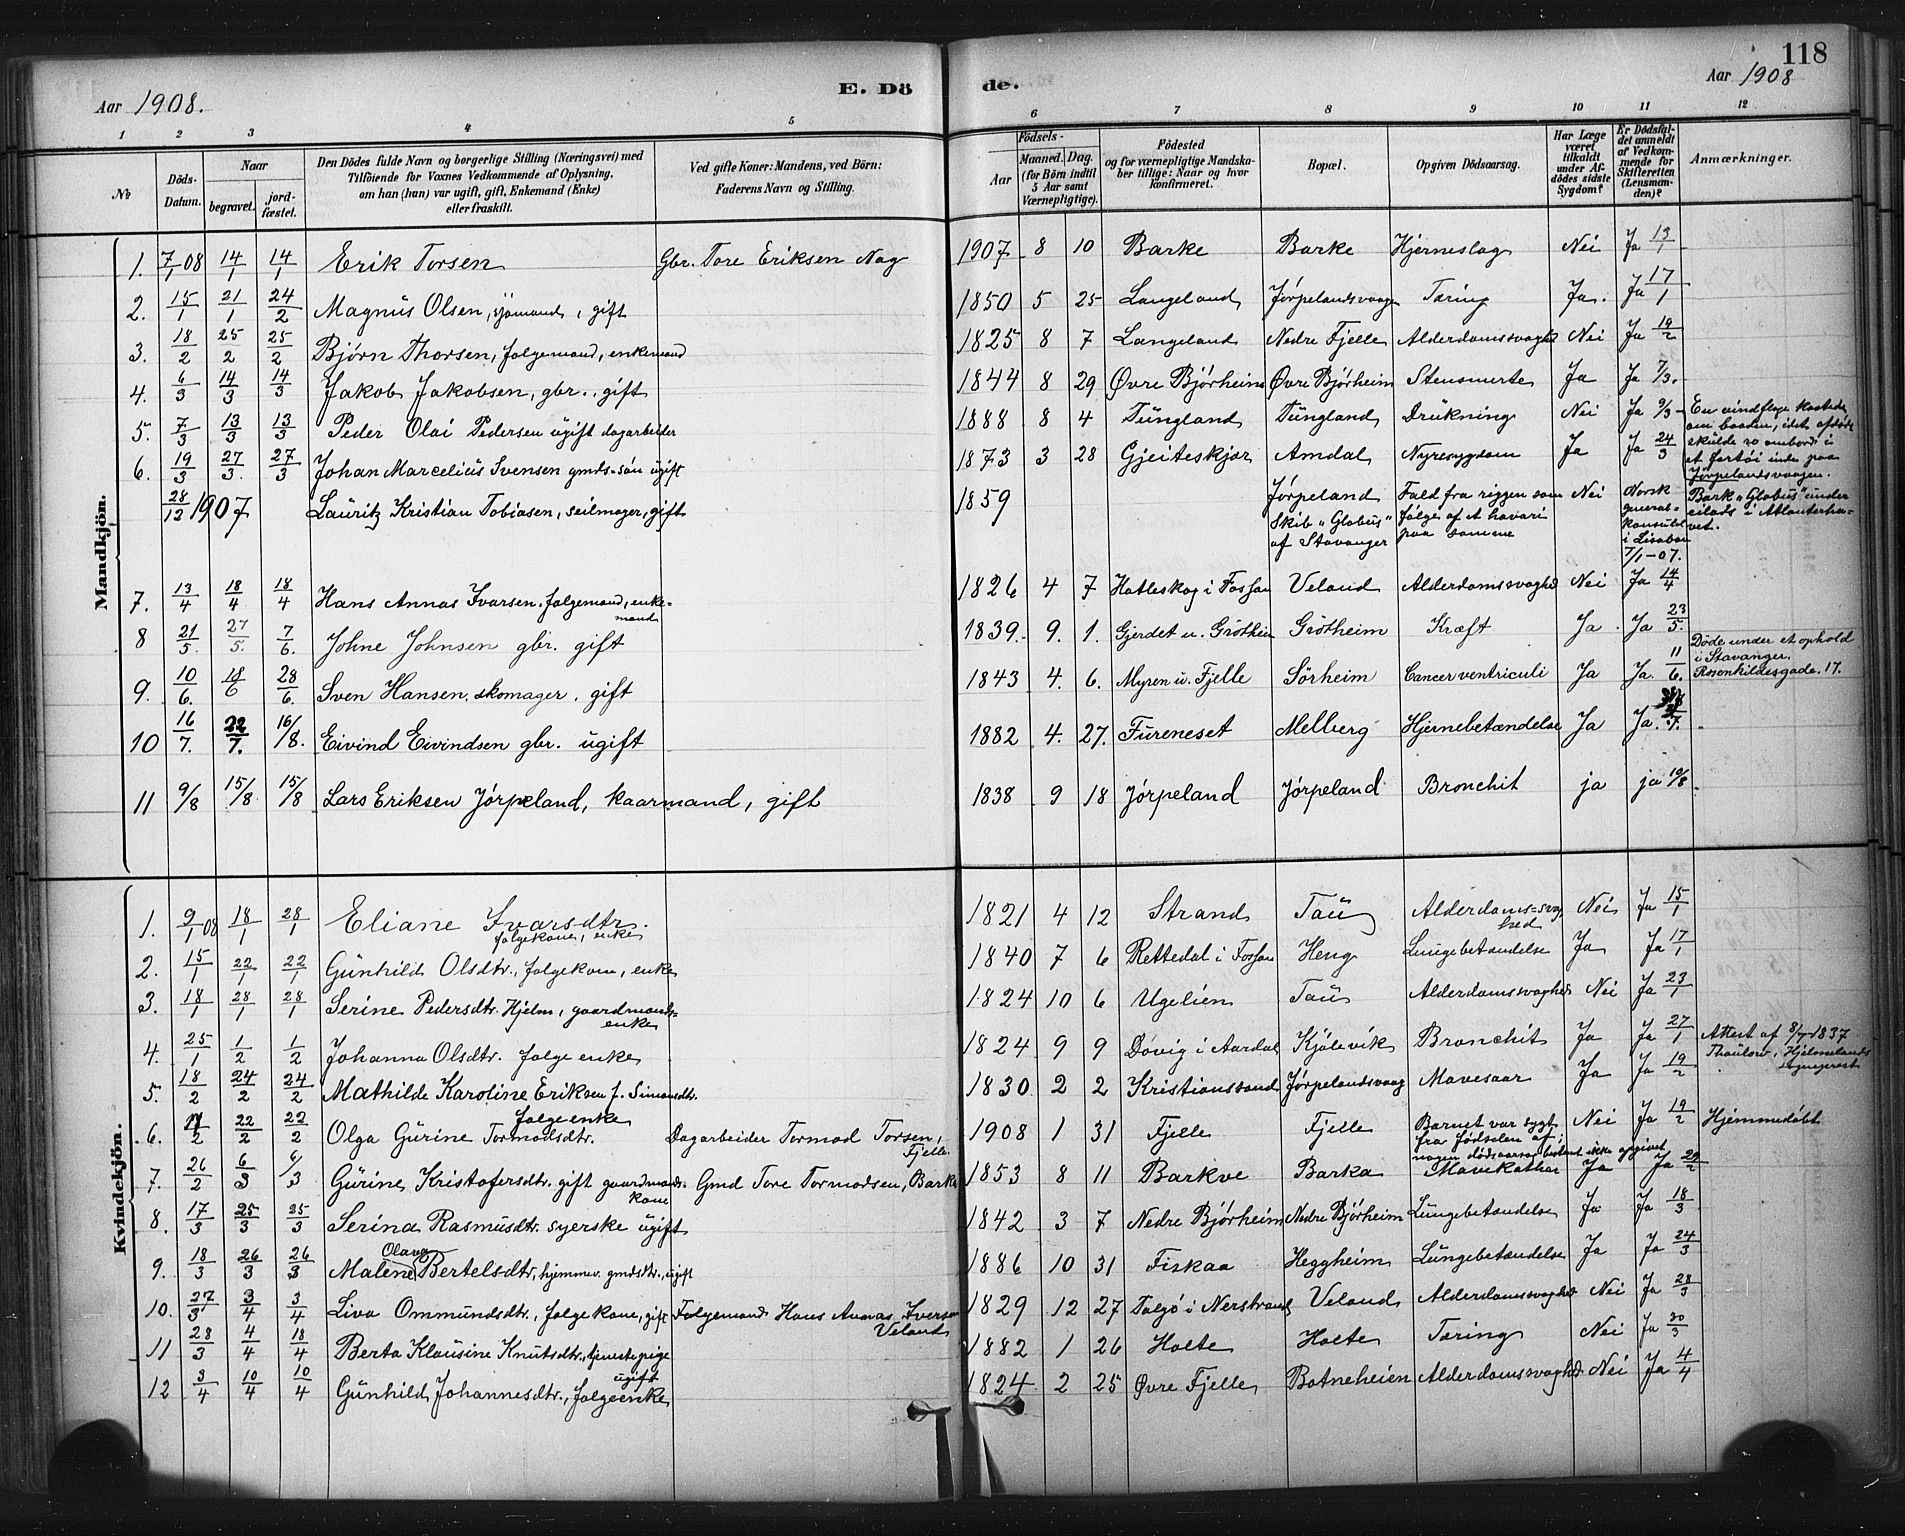 118
Aar 1908.
E. Dö
de.
Aar 1908
1 2 3 4 5 6 7 8 9 10 11 12
№
Döds-Datum.
Naar
begravet.
jord-fæstet.
Den Dödes fulde Navn og borgerlige Stilling (Næringsvei) med
Tilföiende for Voxnes Vedkommende af Oplysning,
om han (hun) var ugift, gift, Enkemand (Enke)
eller fraskilt.
Ved gifte Koner: Mandens, ved Börn:
Faderens Navn og Stilling.
Födsels-
Aar
Maaned. Dag.
(for Börn indtil
5 Aar samt
Værnepligtige).
Födested
og for værnepligtige Mandska-
ber tillige: Naar og hvor
konfirmeret.
Bopæl.
Opgiven Dödsaarsag.
Har Læge
været
tilkaldt
under Af-
dödes sidste
Sygdom?
Er Dödsfal-
det anmeldt
af Vedkom-
mende for
Skifteretten
(Lensman-
den)?
Anmærkninger.
Mandkjön.
1. 7/1 08 14/1 14/1 Erik Torsen Gbr. Tore Eriksen Nag 1907 8 10 Barke Barke Hjerneslag Nei Ja 13/1
2. 15/1 21/1 24/2 Magnus Olsen, sjömand, gift 1850 5 25 Langeland Jørpelandsvaagen Tæring Ja. Ja 17/1
3. 18/2 25/2 25/2 Bjørn Thorsen, folgemand, enkemand 1825 8 7 Langeland Nedre Fjelle Alderdomssvaghed Nei Ja 19/2
4. 6/3 14/3 14/3 Jakob Jakobsen, gbr., gift 1844 8 29 Øvre Bjørheim Øvre Bjørheim Stensmerte Ja Ja 7/3.
5. 7/3 13/3 13/3 Peder Olai Pedersen ugift dagarbeider 1888 8 4 Tungland Tungland Drukning Nei Ja 9/3 En vindflage kastede
om baaden, idet afdöde
skulde ro ombord i
et fartöi inde paa
Jørpelandsvaagen.
6. 19/3 27/3. 27/3 Johan Marcelius Svensen gmds-sön ugift 1873 3 28 Gjeiteskjær Amdal Nyresygdom Ja Ja 24/3
28/12 1907 Lauritz Kristian Tobiasen, seilmager, gift 1859 Jørpeland
Skib "Globus"
af Stavanger
Fald fra riggen som
følge af et havari
paa samme
Nei Norsk
general-
konsulat
i Lisabon
7/1-07.
Bark "Globus" under
eilads i Atlanterha-
vet.
7. 13/4 18/4 18/4 Hans Annas Ivarsen. folgemand, enke-
mand 1826 4 7 Hatleskog i Fossan Veland Alderdomssvaghed Nei Ja 14/4
8 21/5. 27/5. 7/6. Johne Johnsen gbr. gift 1839. 9. 1. Gjerdet u. Grötheim Grötheim Kræft Ja Ja 23/5.
9. 10/6. 18/6 28/6. Sven Hansen, skomager, gift 1843 4. 6. Myren u. Fjelle Sörheim Cancer ventriculi Ja Ja. 11/6. Döde under et ophold
i Stavanger.
Rosenkildesgade. 17.
10 16/7. 22/7. 16/8. Eivind Eivindsen gbr. ugift 1882 4. 27. Fureneset Melberg Hjernebetændelse Ja Ja.
11 9/8 15/8 15/8 Lars Eriksen Jörpeland, kaarmand, gift 1838 9 18 Jörpeland Jörpeland Bronchit ja ja 10/8
Kvindekjön.
1. 9/1 08 18/1 28/1 Eliane Ivarsdtr.
folgekone, enke 1821 4 12 Strand Tau Alderdoms-svag
hed Nei Ja 15/1
2. 15/1 22/1 22/1 Gunhild Olsdtr., folgekone, enke 1840 7 6 Rettedal i Fossan Heng Lungebetændelse Ja Ja 17/1
3. 18/1 28/1 28/1 Serine Pedersdtr. Hjelm, gaardmands-
enke 1824 10 6 Ugelien Tau Alderdomssvaghed Nei Ja 23/1
4. 25/1 1/2 1/2 Johanna Olsdtr. folge enke 1824 9 9 Døvig i Aardal Kjölevik Bronchit Ja Ja 27/1 Attest af 8/7 1837
Thaulow, Hjelmelands
sogneprest
5. 18/2 24/2 24/2 Mathilde Karoline Eriksen f. Simonsdtr.
folge enke 1830 2 2 Kristianssand Jørpelandsvaag Mavesaar Ja Ja 19/2
6. 17/2 22/2 22/2 Olga Gurine Tormodsdtr. Dagarbeider Tormod Torsen,
Fjelle 1908 1 31 Fjelle Fjelle Barnet var sygt
fra fødselen af;
nogen dödsaarsag bestemt ikke opgivet Nei Ja 19/2 Hjemmedöbt
7. 26/2 6/3 6/3 Gurine Kristofersdtr. gift gaardmands-
kone Gmd Tore Tormodsen, Barke 1853 8 11 Barkve Barka Mavekathar Ja Ja 29/2
8. 17/3 25/3 25/3 Serina Rasmusdtr. syerske ugift 1842 3 7 Nedre Bjørheim Nedre Bjørheim Lungebetændelse Ja Ja 18/3
9. 18/3 26/3 26/3 Malene Olava Bertelsdtr, hjemmev. gmdsdtr., ugift 1886 10 31 Fiskaa Heggheim Lungebetændelse Ja Ja 24/3
10. 27/3 3/4 3/4 Liva Ommundsdtr., folgekone, gift Folgemand Hans Annas Iversen
Veland 1829 12 27 Talgö i Nerstrand Veland Alderdomssvaghed Nei Ja 28/3
11 28/3 4/4 18/4 Berta Klausine Knutsdtr., tjenestepige
ugift 1882 1 26 Holte Holte Tæring Nei Ja 30/3
12 3/4 10/4 10/4 Gunhild Johannesdtr., folgeenke 1824 2 25 Øvre Fjelle Botneheien Alderdomssvaghed Nei Ja 4/4